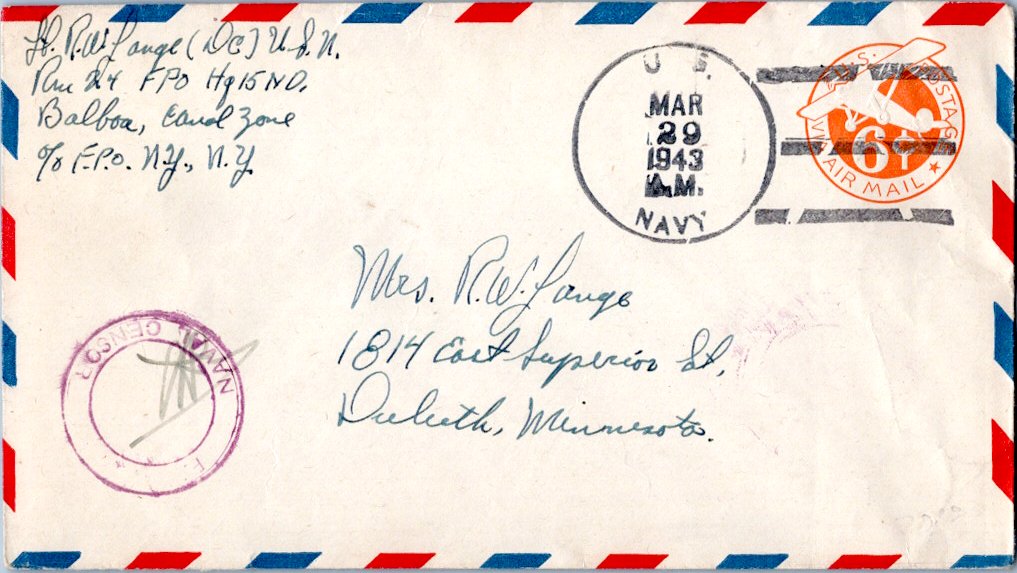 Lt. R.W. Lange (DC) U.S.N.
Rm 24 FPO Hq 15 ND.
Balboa, Canal Zone
c/o F.P.O. N.Y., N.Y.
U.S.
MAR
29
1943
A.M.
NAVY
U.S. POSTAGE
6¢
VIA AIR MAIL
Mrs. R.W. Lange
1814 East Superior St,
Duluth, Minnesota.
NAVAL CENSOR